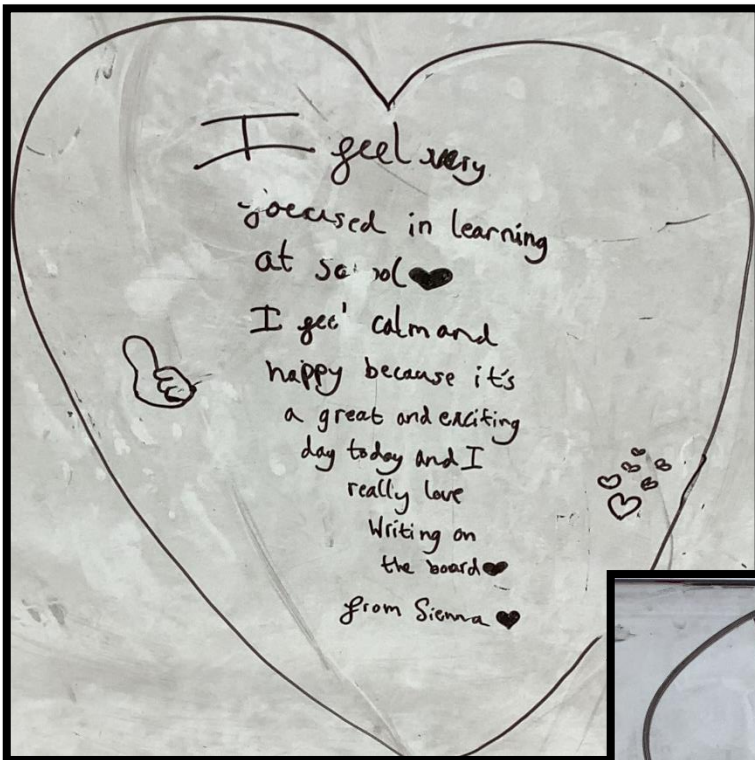 I feel very
focused in learning
at school
I feel calm and
happy because it's
a great and exciting
day today and I
really love
Writing on
the board
from Sienna